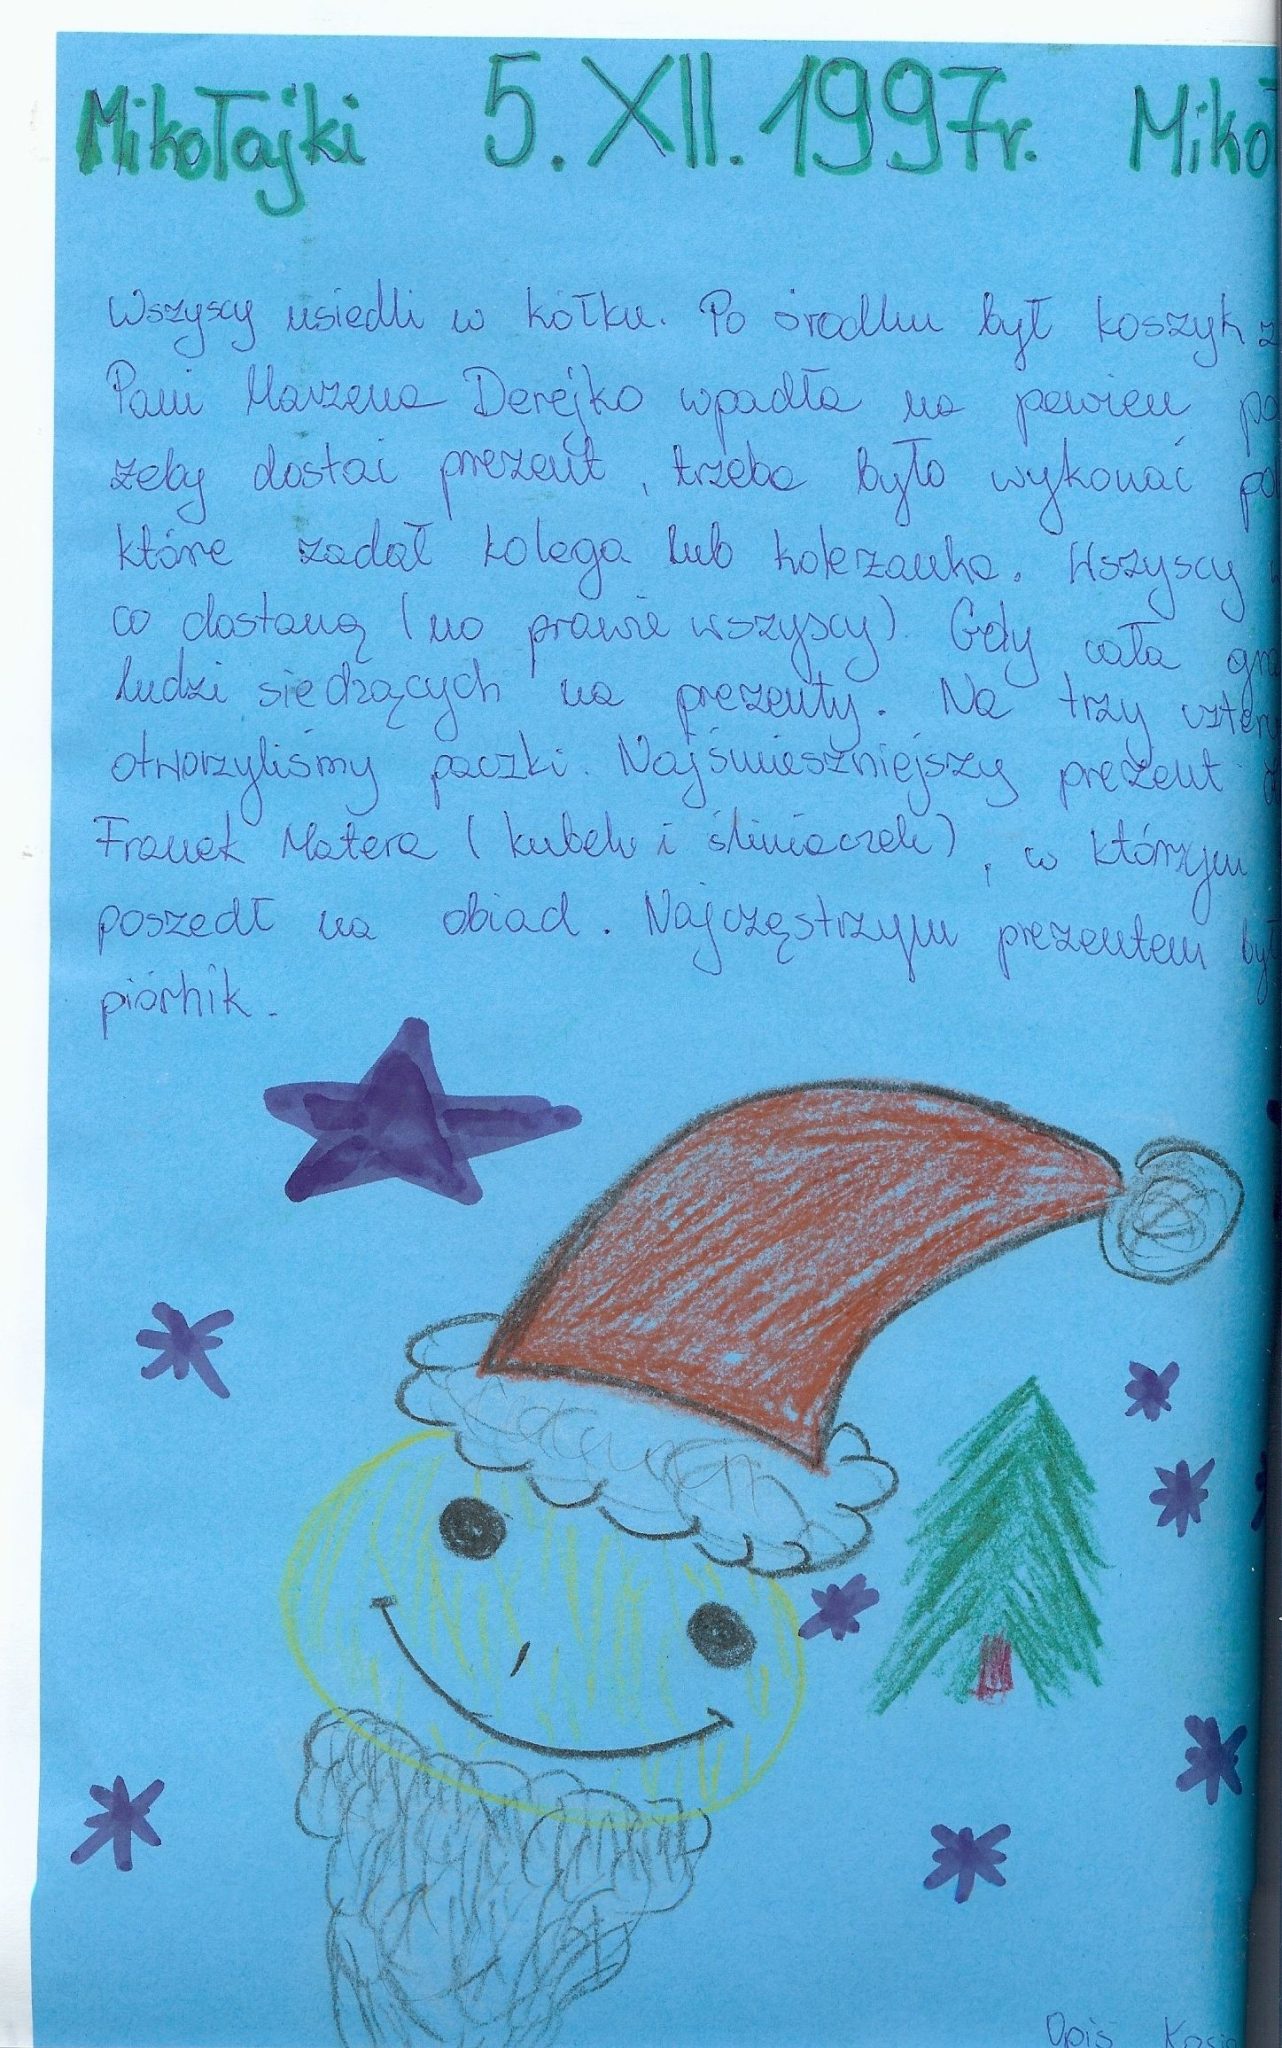 Mikołajki 5. XII. 1997r. Miko
Wszyscy usiedli w kółku. Po środku był koszyk z
Pani Marzena Derejko wpadła na pewien po
żeby dostać prezent, trzeba było wykonać po
które zadał kolega lub koleżanka. Wszyscy
co dostaną (no prawie wszyscy) Gdy cała gro
ludzi siedzących na prezenty. Na trzy czter
otworzyliśmy paczki. Najśmieszniejszy prezent
Franek Matera (kubek i śliniaczek), w którzym
poszedł na obiad. Najczęstrzym prezentem był
piórnik.
Opis Kasia